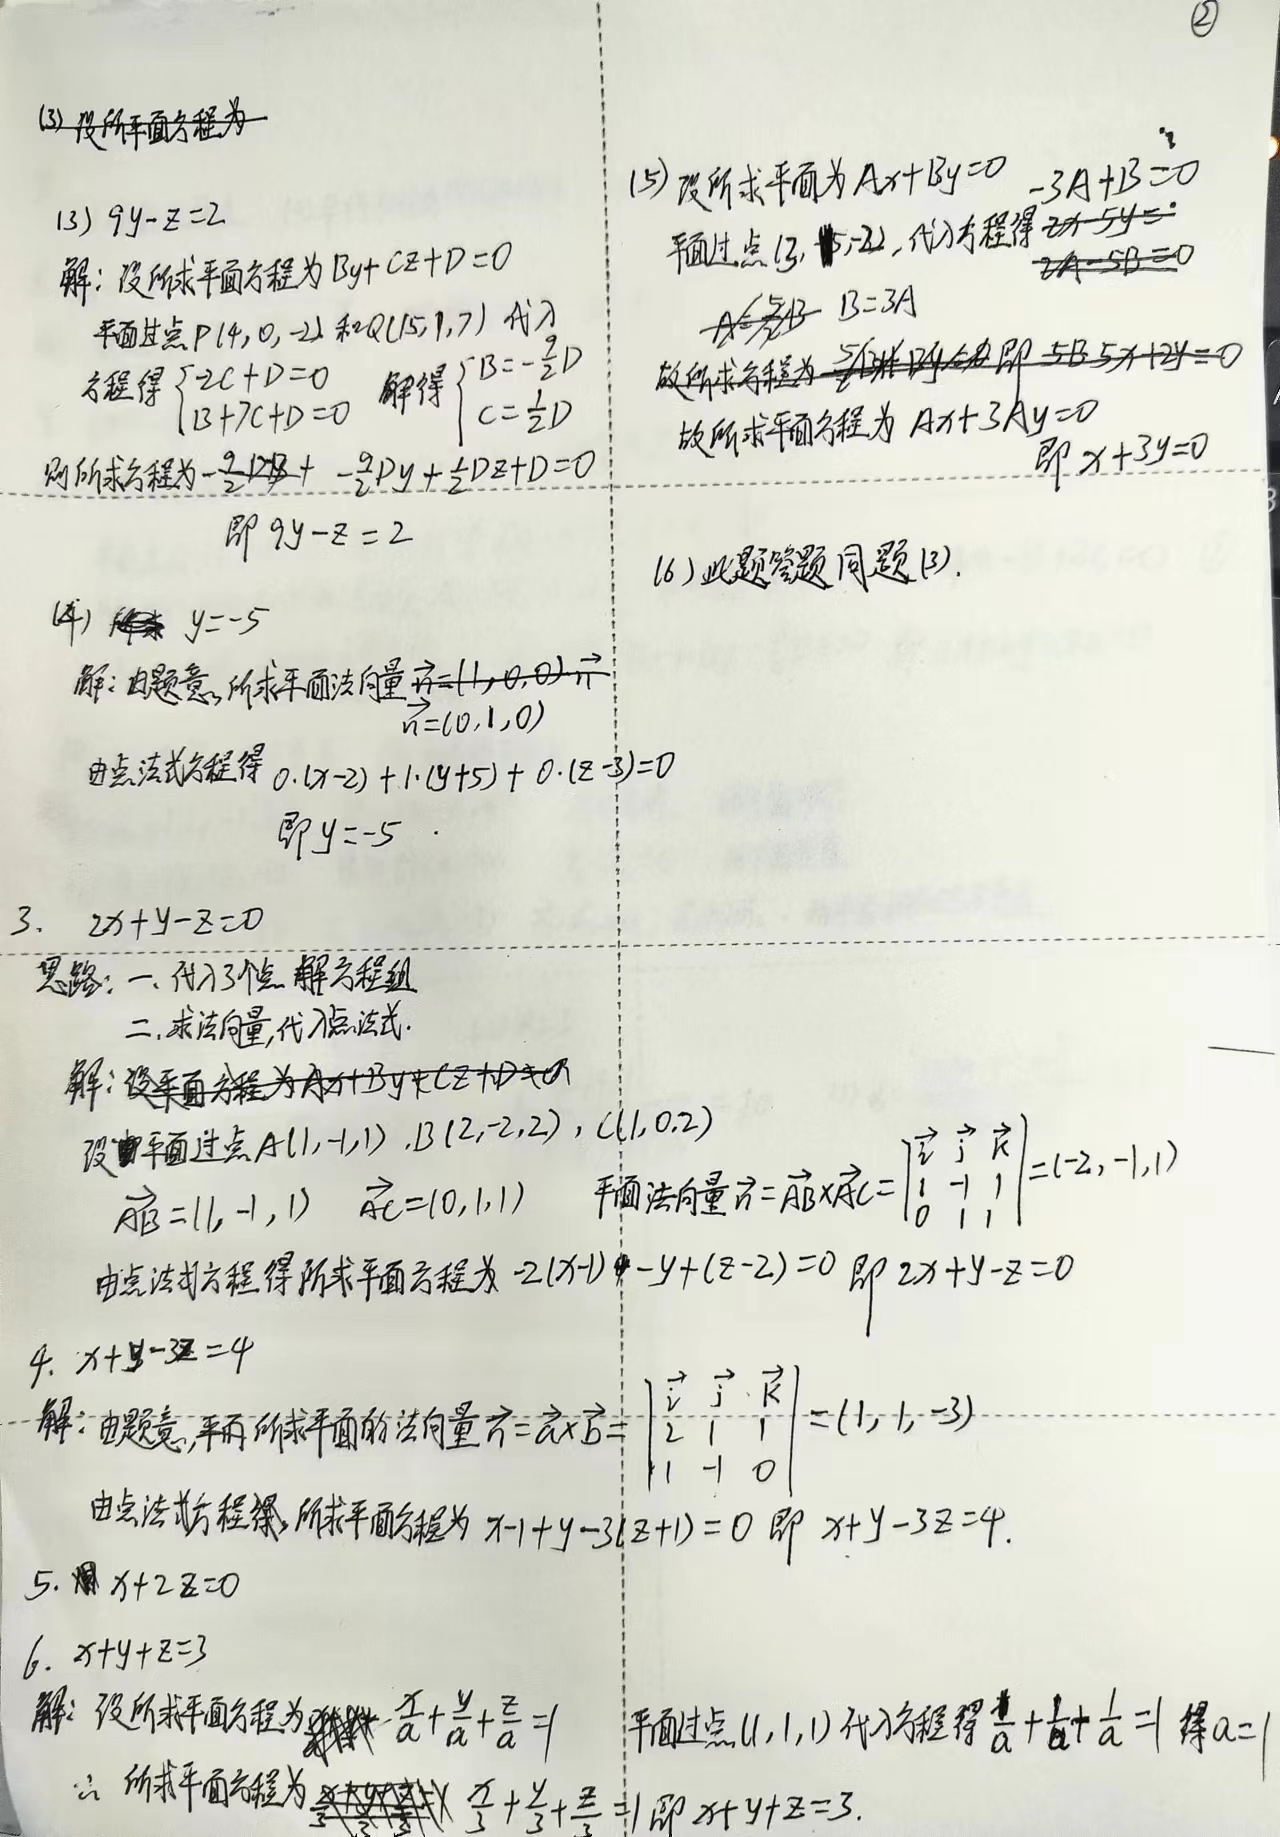 ②
(3) 9y-z=2
解：设所求平面方程为By+Cz+D=0
平面过点P(4,0,-2)和Q(5,1,7)代入
方程得{-2C+D=0 B+7C+D=0 解得{B=-9/2D C=1/2D
则所求方程为 -9/2Dy+1/2Dz+D=0
即9y-z=2
(4) y=-5
解：由题意,所求平面法向量
n=(0,1,0)
由点法式方程得 0·(x-2)+1·(y+5)+0·(z-3)=0
即y=-5
(5) 设所求平面为Ax+By=0 -3A+B=0
平面过点 代入方程得
B=3A
故所求平面方程为 Ax+3Ay=0
即x+3y=0
(6) 此题答题同题(3).
3. 2x+y-z=0
思路：一、代入3个点 解方程组
二.求法向量,代入点法式.
解：
设平面过点A(1,-1,1).B(2,-2,2),C(1,0,2)
AB=(1,-1,1) AC=(0,1,1) 平面法向量n=AB×AC=|i j k 1 -1 1 0 1 1|=(-2,-1,1)
由点法式方程得所求平面方程为-2(x-1)-y+(z-2)=0 即2x+y-z=0
4. x+y-3z=4
解：由题意,所求平面的法向量n=a×b=|i j k 2 1 1 1 -1 0|=(1,1,-3)
由点法式方程得,所求平面方程为 x-1+y-3(z+1)=0 即 x+y-3z=4.
5. x+2z=0
6. x+y+z=3
解：设所求平面方程为 x/a+y/a+z/a=1 平面过点(1,1,1)代入方程得1/a+1/a+1/a=1 得a=
∴ 所求平面方程为 x/3+y/3+z/3=1即x+y+z=3.